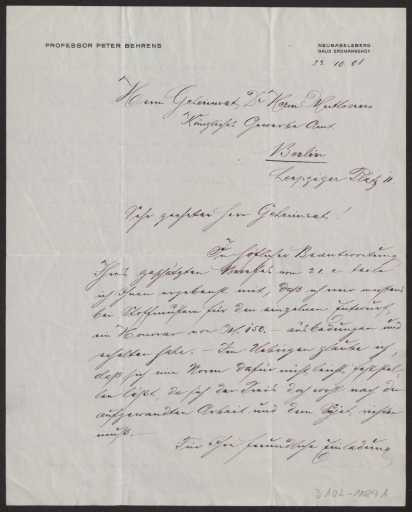 PROFESSOR PETER BEHRENS
NEUBABELSBERG
HAUS ERDMANNSHOF
23.10.08
Herrn Geheimrat Dr Herm. Muthesius
Königliches Gewerbe Amt.
Berlin
Leipziger Platz 11
Sehr geehrter Herr Geheimrat!
In höflicher Beantwortung
Ihres geschätzten Briefes vom 21. c. teile
ich Ihnen ergebenst mit, daß ich
bei Stoffmustern für den einzelnen Entwurf,
ein Honorar von M. 150.-
erhalten habe. - Im Uebrigen glaube ich,
daß sich eine Norm dafür nicht
läßt, da sich der Preis doch wohl nach der
aufgewandten Arbeit und dem Objekt richten
muß. -
Für Ihre freundliche Einladung